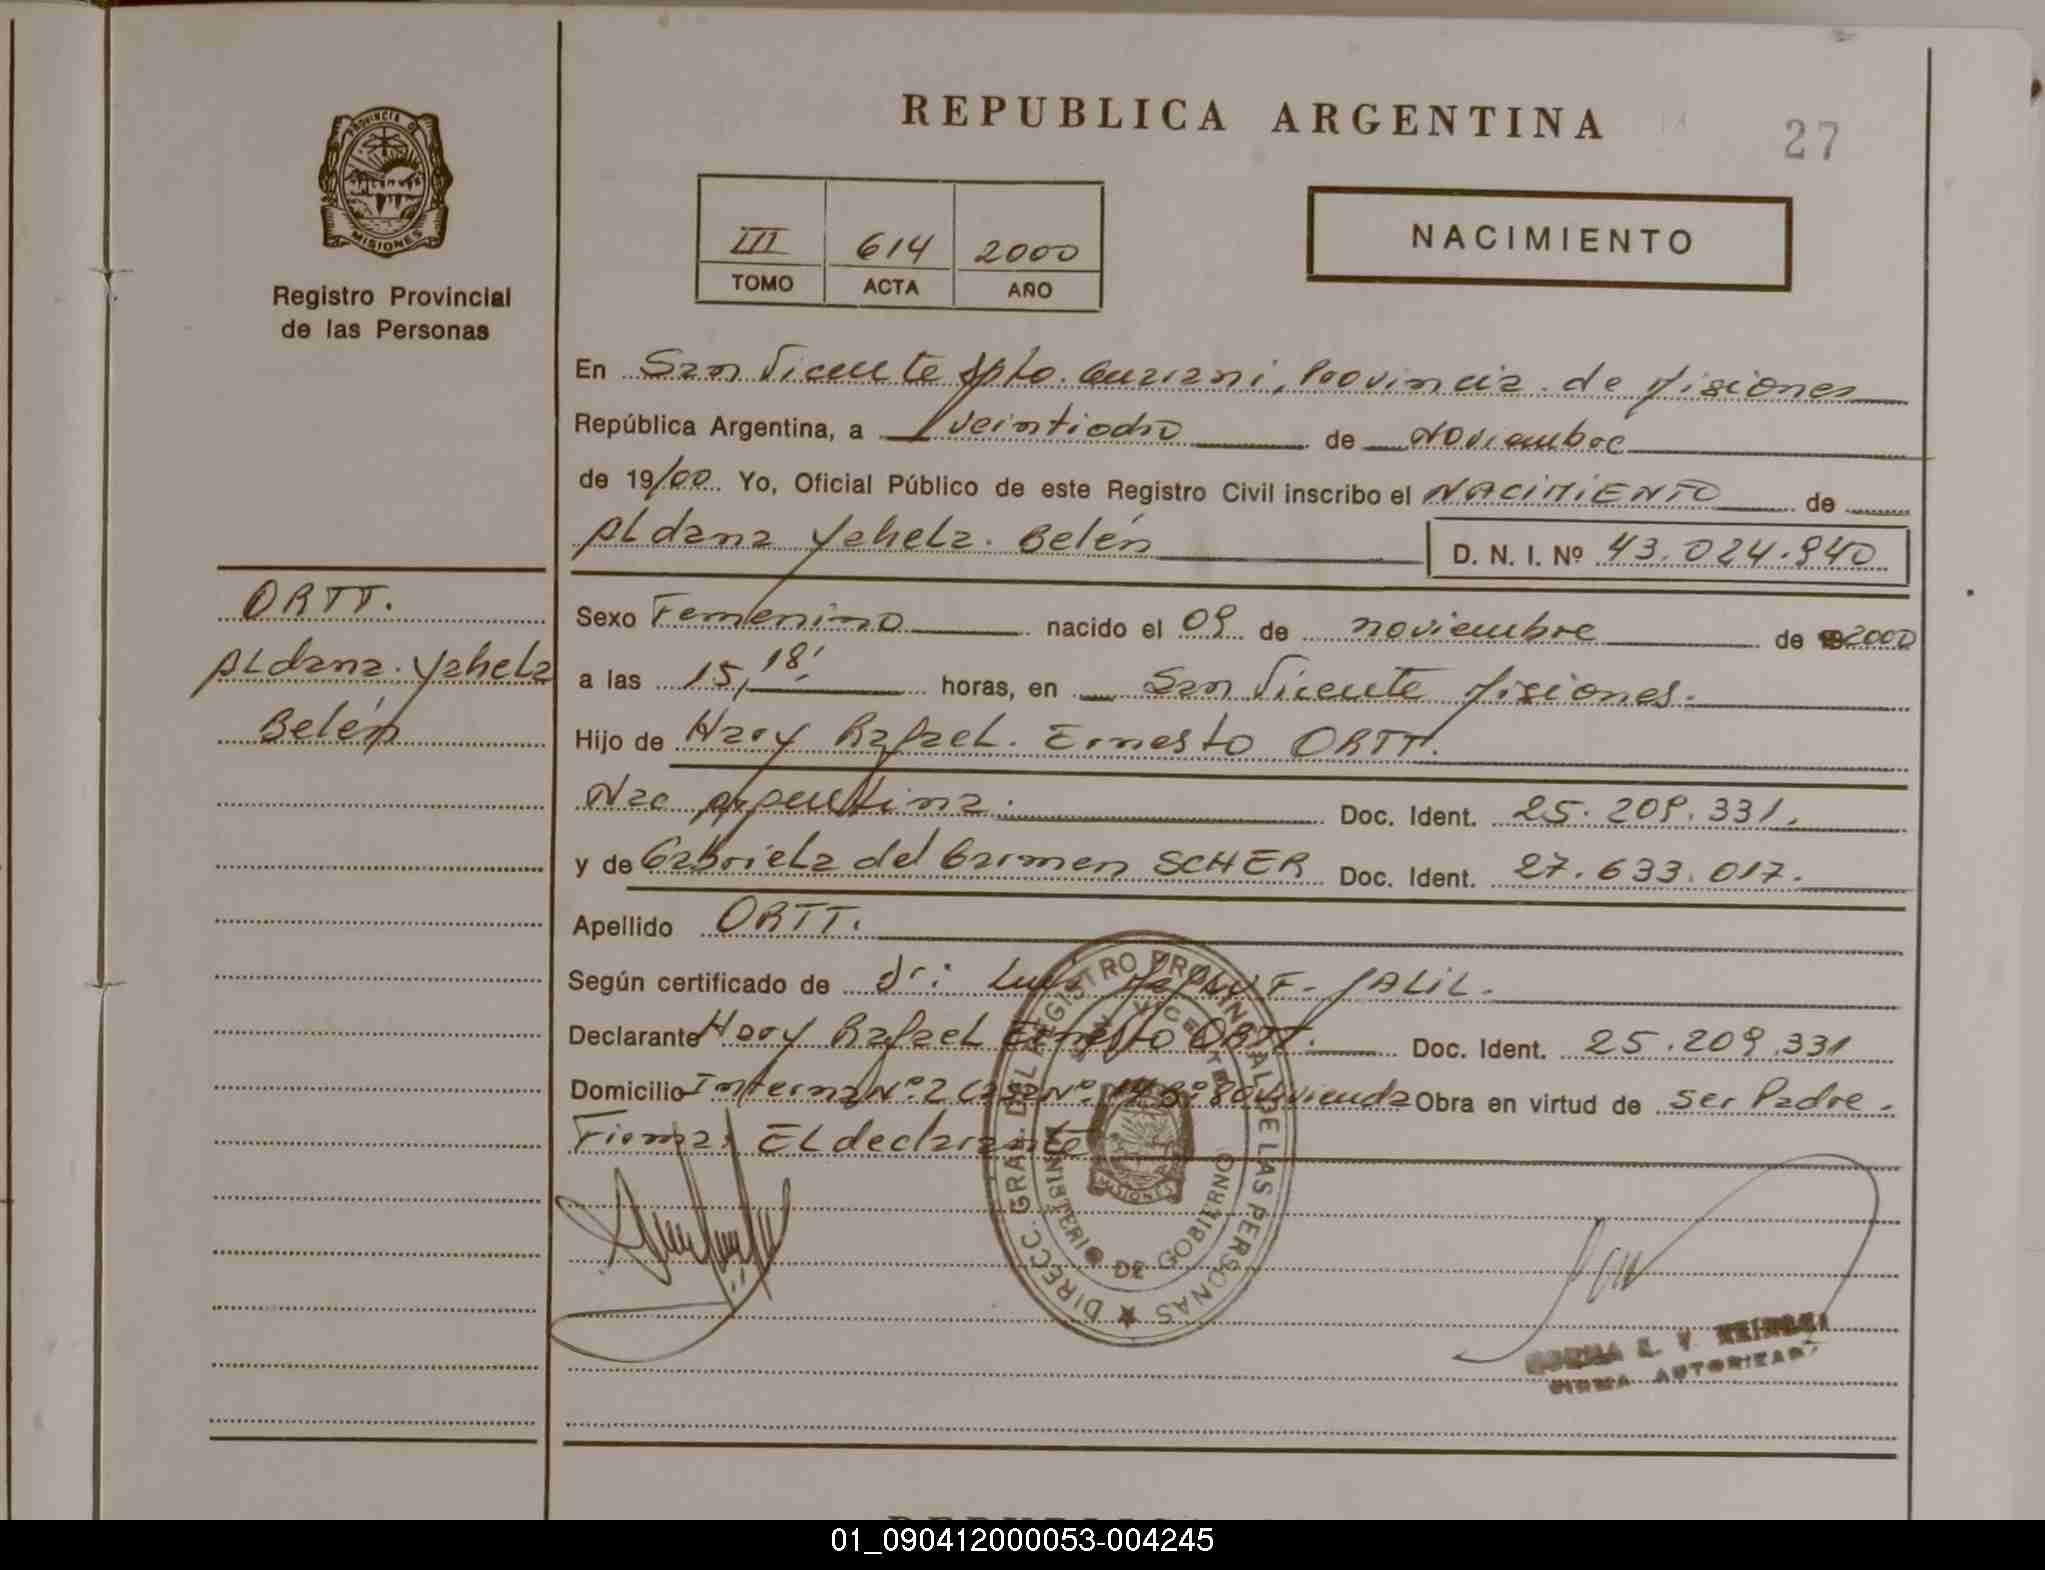 REPUBLICA ARGENTINA
27
PROVINCIA DE
MISIONES
Registro Provincial
de las Personas
III 614 2000
TOMO ACTA AÑO
NACIMIENTO
En San Vicente Dpto. Guarani, Provincia de Misiones
República Argentina, a veintiocho de Noviembre
de 19/00 Yo, Oficial Público de este Registro Civil inscribo el NACIMIENTO de
Aldana Yahela Belén D. N. I. Nº 43.024.940
ORTT.
Aldana Yahela
Belén
Sexo Femenino nacido el 09 de noviembre de 2000
a las 15,18' horas, en San Vicente Misiones.
Hijo de Hary Rafael Ernesto ORTT.
Nac Argentina. Doc. Ident. 25.209.331.
y de Gabriela del Carmen SCHER Doc. Ident. 27.633.017.
Apellido ORTT.
Según certificado de Dr: Luis F. JALIL.
Declarante Hary Rafael Ernesto ORTT. Doc. Ident. 25.209.331
Domicilio Interna Nº 2 Casa Nº 14 Bº 80 Vivienda Obra en virtud de ser Padre.
Firma: El declarante
DIRECC. GRAL. DEL REGISTRO PROVINCIAL DE LAS PERSONAS
SAN VICENTE
MINISTERIO DE GOBIERNO
MISIONES
FIRMA AUTORIZADA
01_090412000053-004245